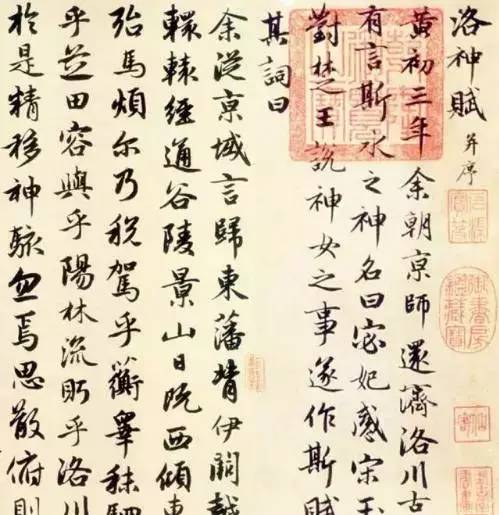 洛神賦 并序
黄初三年余朝京師還濟洛川古
有言斯水之神名曰宓妃感宋玉
對楚王說神女之事遂作斯賦
其詞曰
余從京域言歸東藩背伊闕越
轘轅經通谷陵景山日既西傾車
殆馬煩尔乃税駕乎蘅皋秣駟
乎芝田容與乎陽林流眄乎洛川
於是精移神駭忽焉思散俯則
御書房鑑藏寶